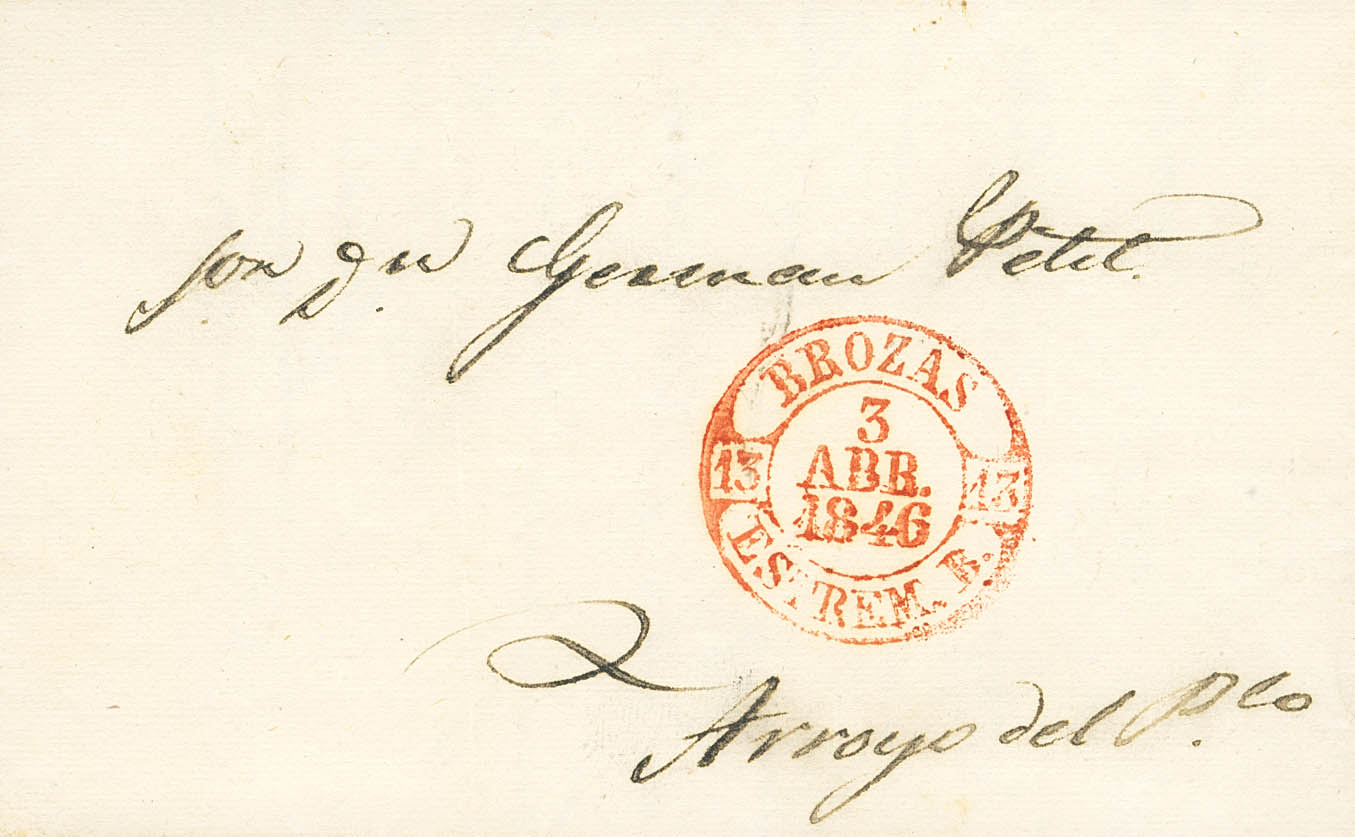 Sor Dn German Petit.
BROZAS
3
ABR.
1846
13 13
ESTREM. B.
Arroyo del Pco